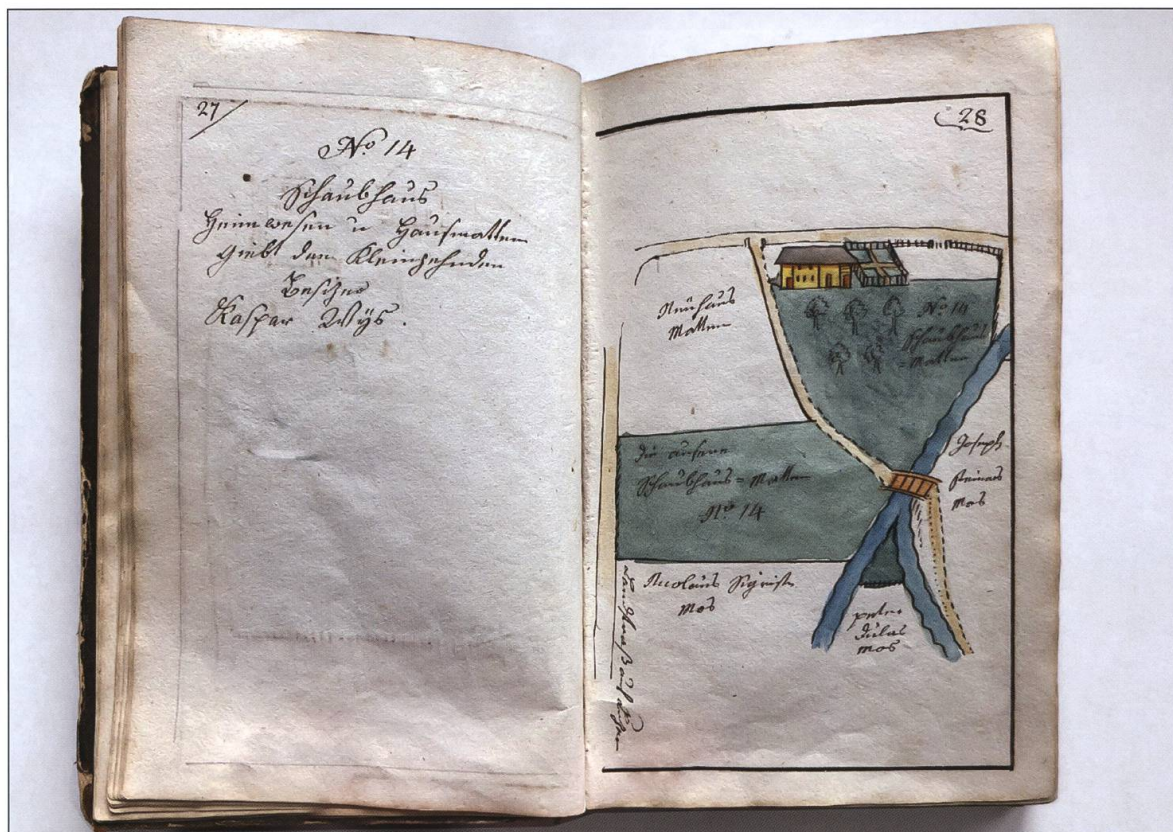 27
No 14
Schaubhaus
Heimwesen u Hausmatten
giebt den Kleinzehnden
Besizer
Kaspar Wÿs.
28
Neuhaus
Matten
No 14
Schaubhaus
=Matten
die aüsere
Schaubhaus=Matten
No 14
Joseph
Mos
Nicolaus Sigrist
Mos
peter
Mos
Landstraß auf